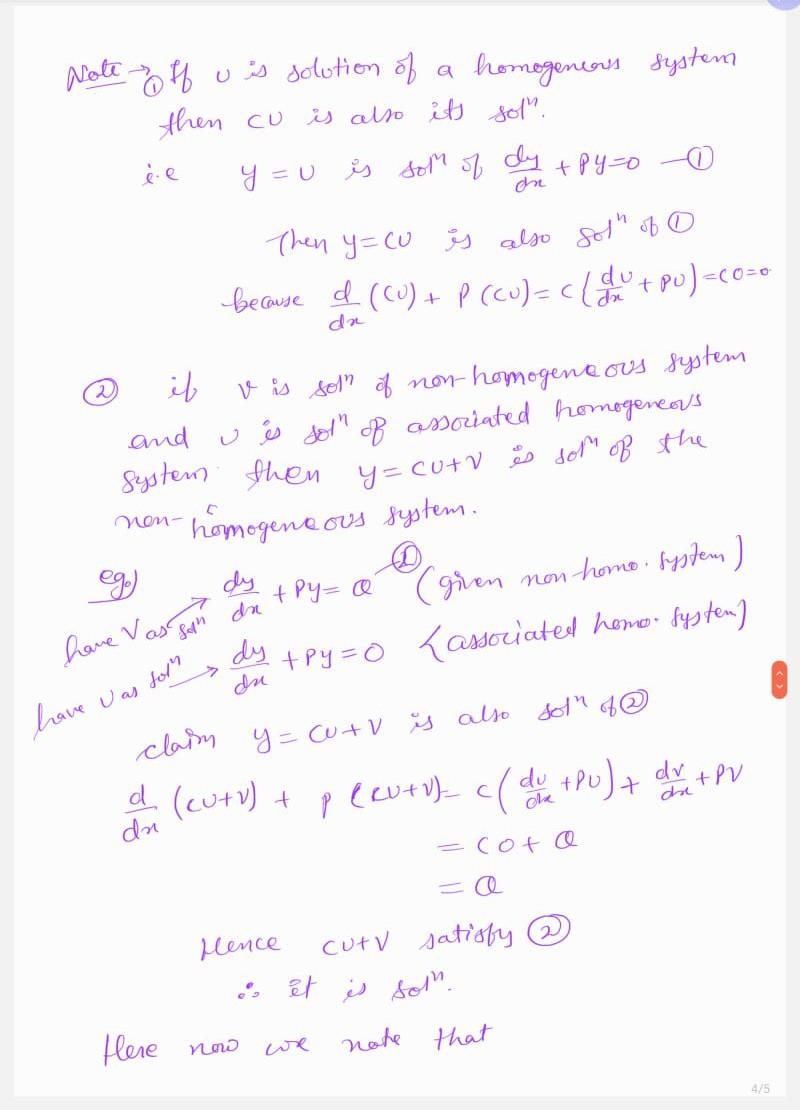 Note → ① If u is solution of a homogeneous system
then cu is also its solⁿ.
i.e y = u is solⁿ of dy/dx + Py=0 —①
Then y=cu is also solⁿ of ①
because d/dx (cu) + P(cu) = c(du/dx + Pu) = c0=0
② if v is solⁿ of non-homogeneous system
and u is solⁿ of associated homogeneous
system then y = cu+v is solⁿ of the
non-homogeneous system.
eg.) dy/dx + Py = Q —② (given non-homo. system)
have v as solⁿ →
dy/dx + Py = 0 (associated homo. system)
have u as solⁿ →
claim y = cu+v is also solⁿ of ②
d/dx (cu+v) + P(cu+v) = c(du/dx + Pu) + dv/dx + Pv
= c0 + Q
= Q
Hence cu+v satisfy ②
∴ it is solⁿ.
Here now we note that
4/5